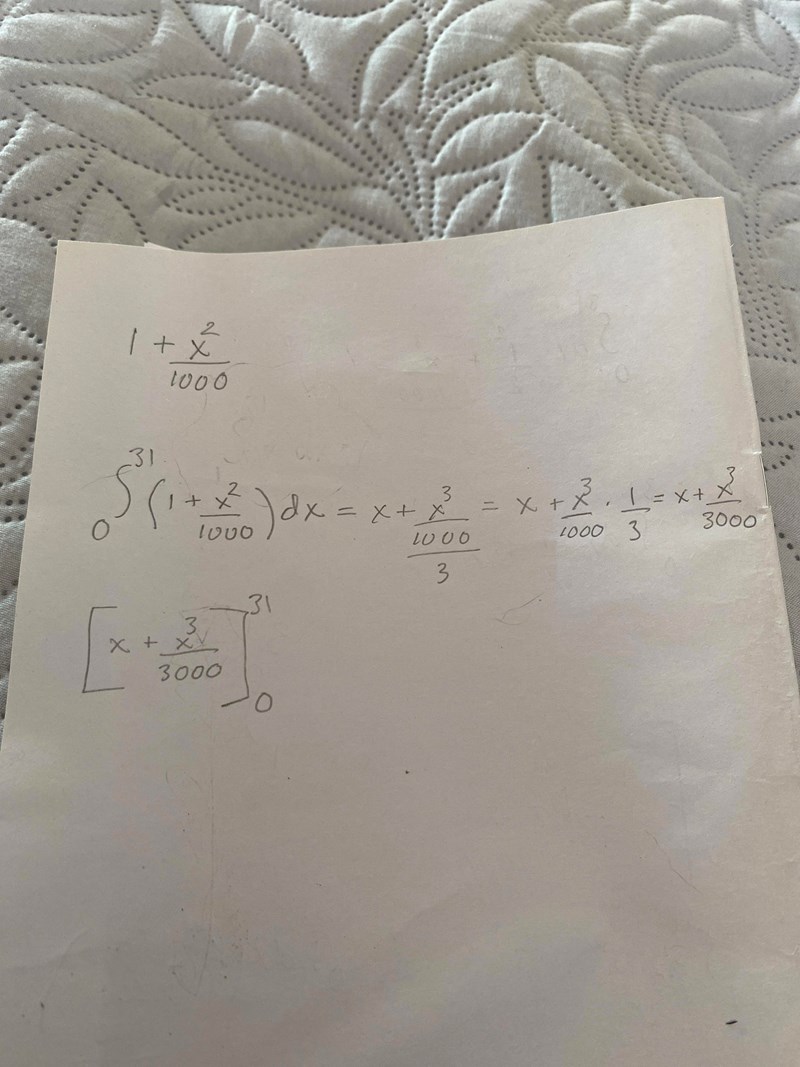 1 + x²/1000
₀∫³¹ (1 + x²/1000) dx = x + x³/1000/3 = x + x³/1000 · 1/3 = x + x³/3000
[x + x³/3000]³¹₀